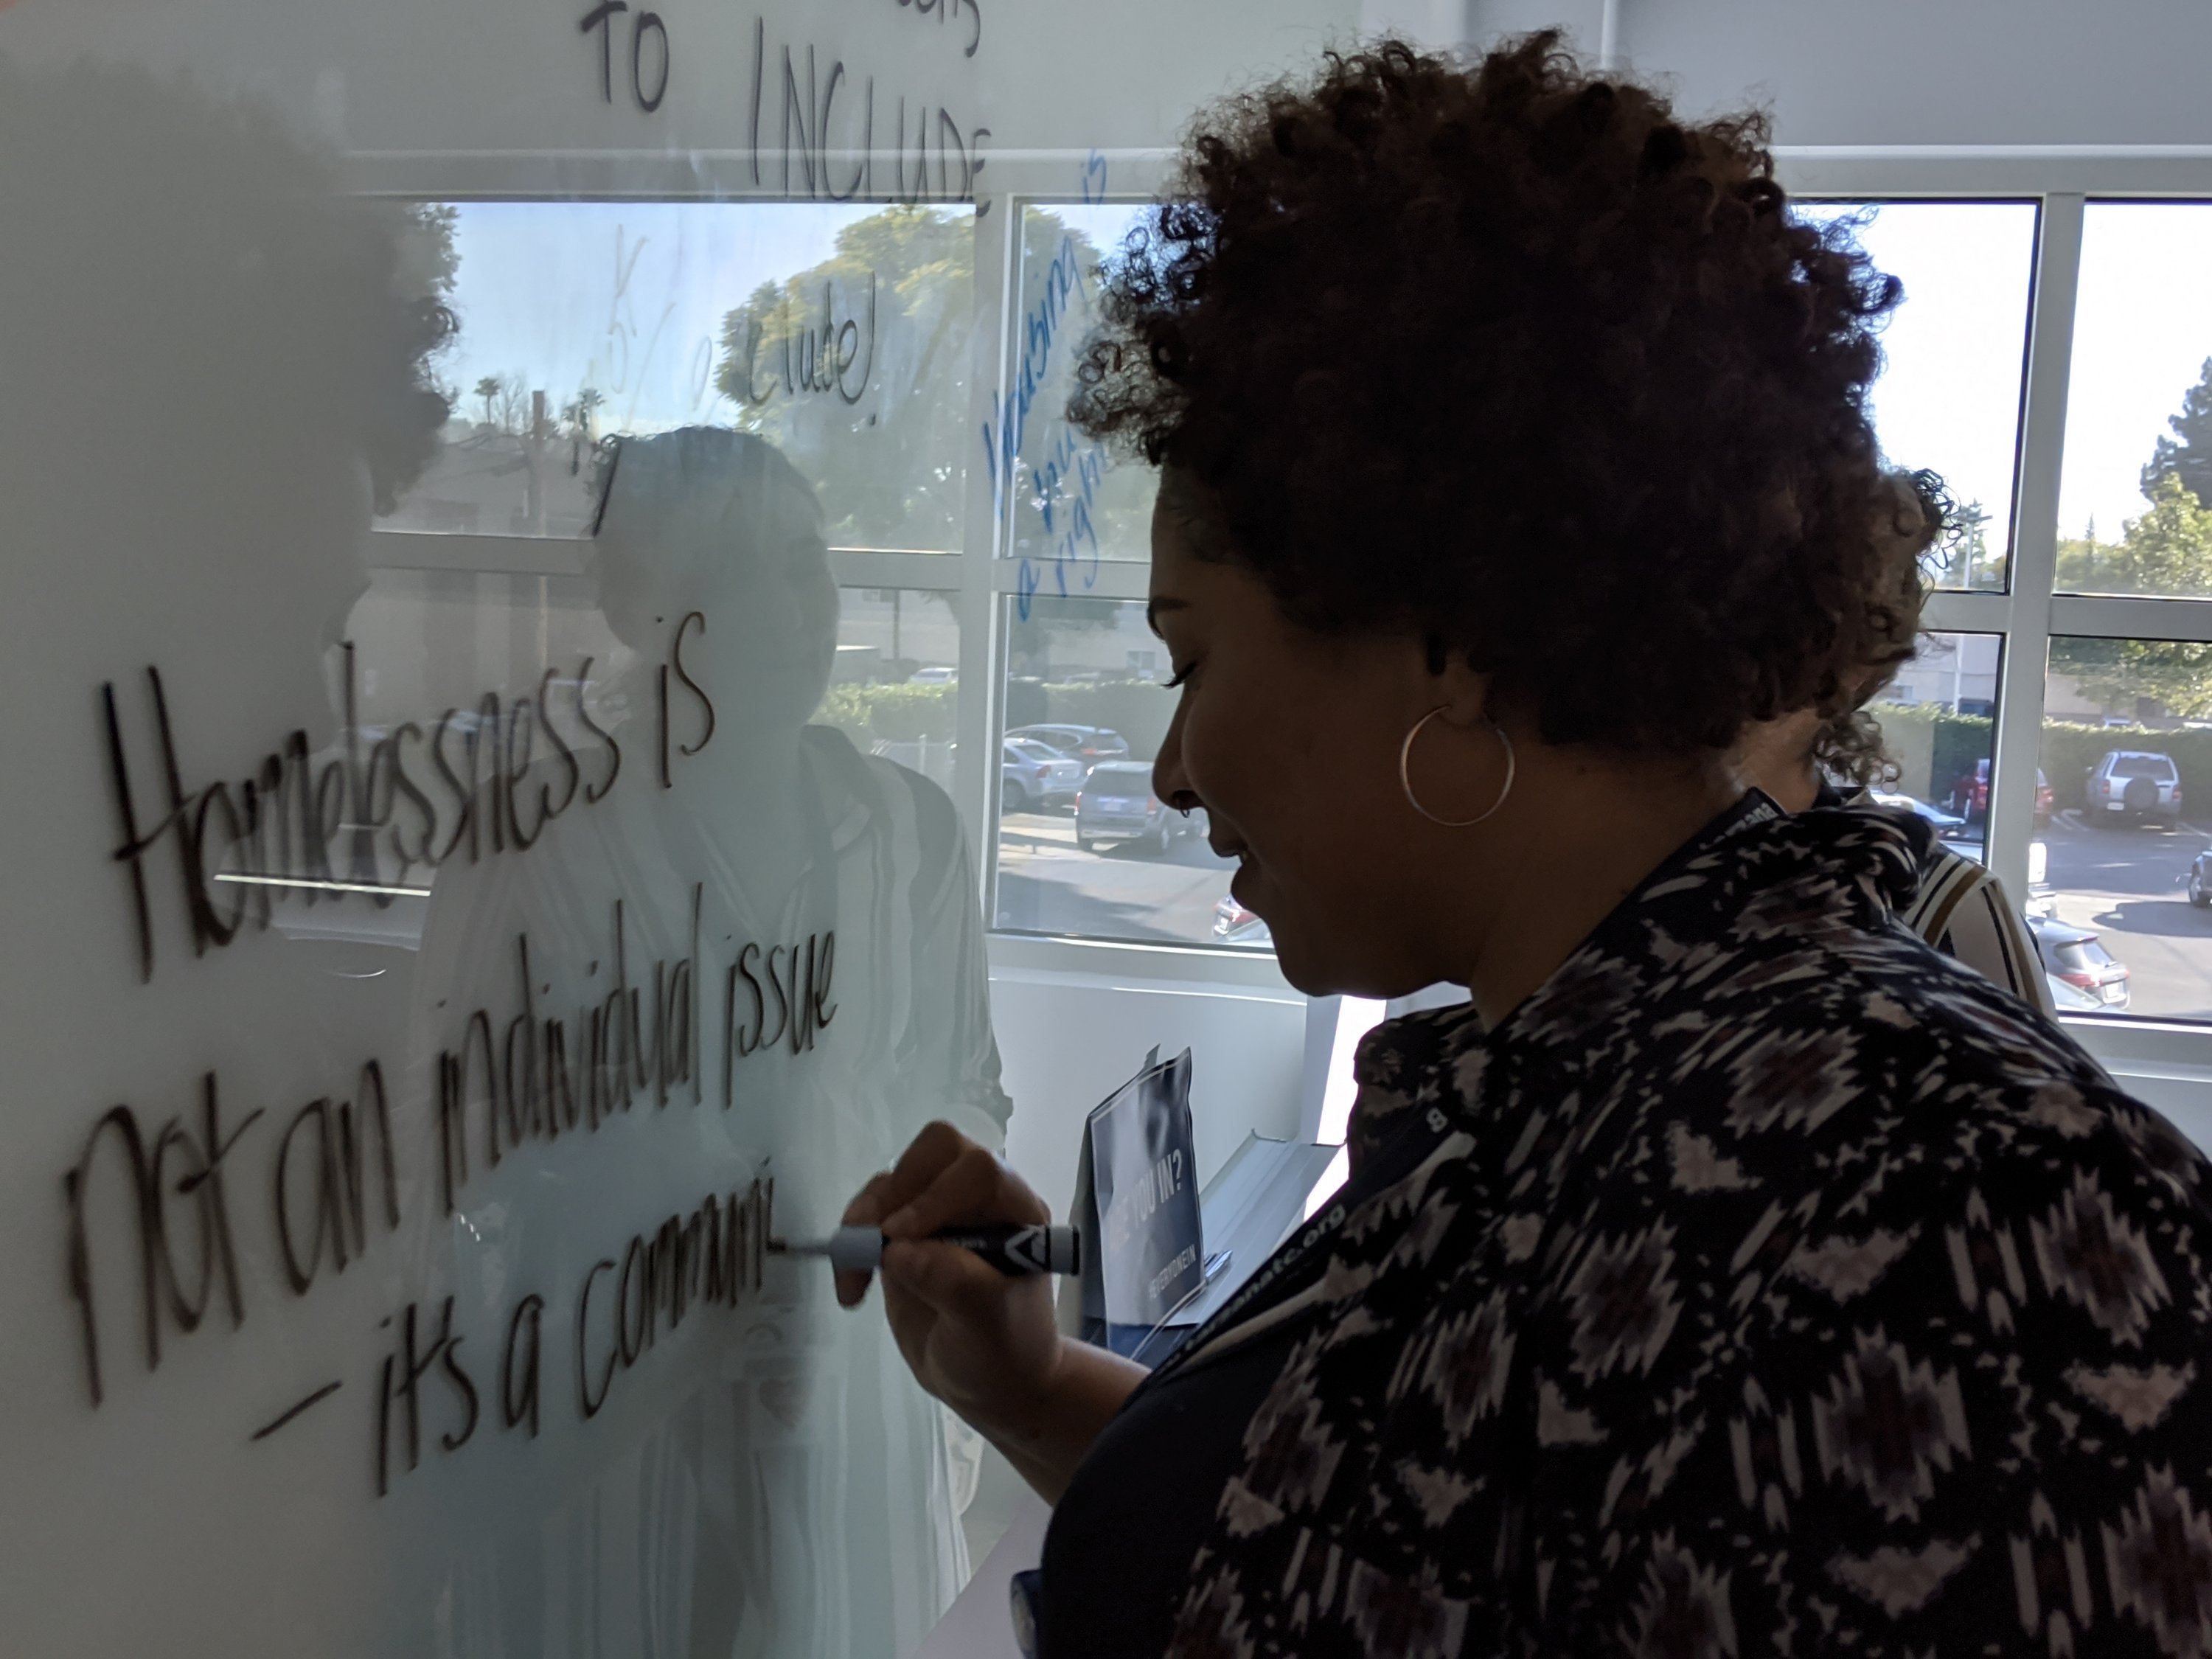 TO INCLUDE
clude!
Housing is
a
right
Homelessness is
not an individual issue
- it's a communi
YOU IN?
#EVERYONEIN